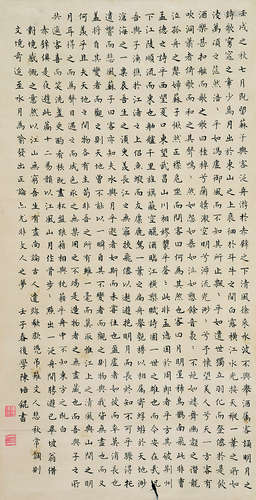 壬戌之秋七月既望蘇子與客泛舟游於赤壁之下清風徐來水波不興舉酒屬客誦明月之
詩歌窈窕之章少焉月出於東山之上徘徊於斗牛之間白露橫江水光接天縱一葦之所如
凌萬頃之茫然浩浩乎如馮虛御風而不知其所止飄飄乎如遺世獨立羽化而登僊於是飲
酒樂甚扣舷而歌之歌曰桂棹兮蘭槳擊空明兮泝流光渺渺兮予懷望美人兮天一方客有
吹洞簫者倚歌而和之其聲嗚嗚然如怨如慕如泣如訴餘音嫋嫋不絕如縷舞幽壑之潛蛟
泣孤舟之嫠婦蘇子愀然正襟危坐而問客曰何為其然也客曰月明星稀烏鵲南飛此非曹
孟德之詩乎西望夏口東望武昌山川相繆鬱乎蒼蒼此非孟德之困於周郎者乎方其破荊州
下江陵順流而東也舳艫千里旌旗蔽空釃酒臨江橫槊賦詩固一世之雄也而今安在哉況
吾與子漁樵於江渚之上侶魚蝦而友麋鹿駕一葉之扁舟舉匏樽以相屬寄蜉蝣於天地渺
滄海之一粟哀吾生之須臾羨長江之無窮挾飛仙以遨遊抱明月而長終知不可乎驟得託
遺響於悲風蘇子曰客亦知夫水與月乎逝者如斯而未嘗往也盈虛者如彼而卒莫消長也
蓋將自其變者而觀之則天地曾不能以一瞬自其不變者而觀之則物與我皆無盡也而又
何羨乎且夫天地之間物各有主苟非吾之所有雖一毫而莫取惟江上之清風與山間之明
月耳得之而為聲目遇之而成色取之無禁用之不竭是造物者之無盡藏也而吾與子之所
共適客喜而笑洗盞更酌肴核既盡杯盤狼籍相與枕藉乎舟中不知東方之既白
以江風山月作骨
對境感慨之意然以江山無窮吾生有盡
文境 水月 非文人之夢 壬子春後學陳培錕書